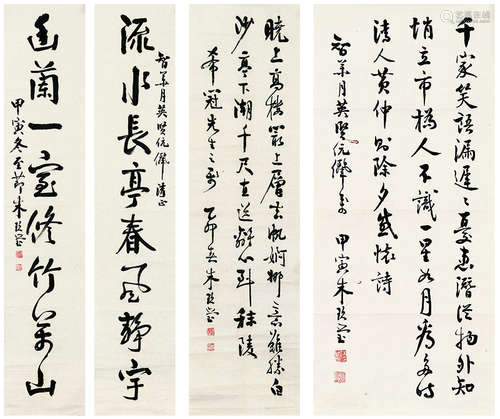 千家笑語漏遲〻憂患潛從物外知
悄立市橋人不識一星如月看多時
清人黄仲則除夕感懷詩
智業月英賢伉儷
甲寅朱玖瑩
曉上高樓最上層去帆婀娜意難勝白
沙亭下潮千尺直送離心到秣陵
希冠先生
朱玖瑩
流水長亭春風靜宇
智業月英賢伉儷清正
幽蘭一室修竹萬山
甲寅冬至節朱玖瑩